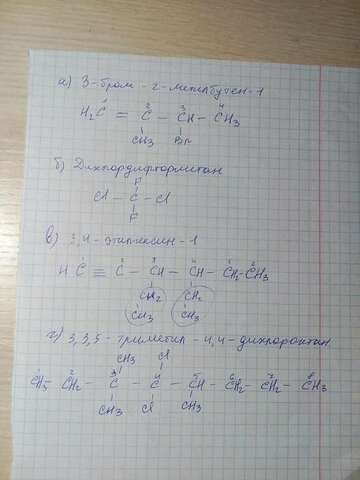 а) 3-бром-2-метилбутен-1
H₂C = C - CH - CH₃
1 2 3 4
CH₃ Br
б) Дихлордифторметан
F
Cl - C - Cl
F
в) 3,4-этилгексин-1
HC ≡ C - CH - CH - CH₂-CH₃
CH₂ CH₂
CH₃ CH₃
г) 3,3,5-триметил-4,4-дихлороктан
CH₃ Cl
CH₃ - CH₂ - C - C - CH - CH₂ - CH₂ - CH₃
CH₃ Cl CH₃